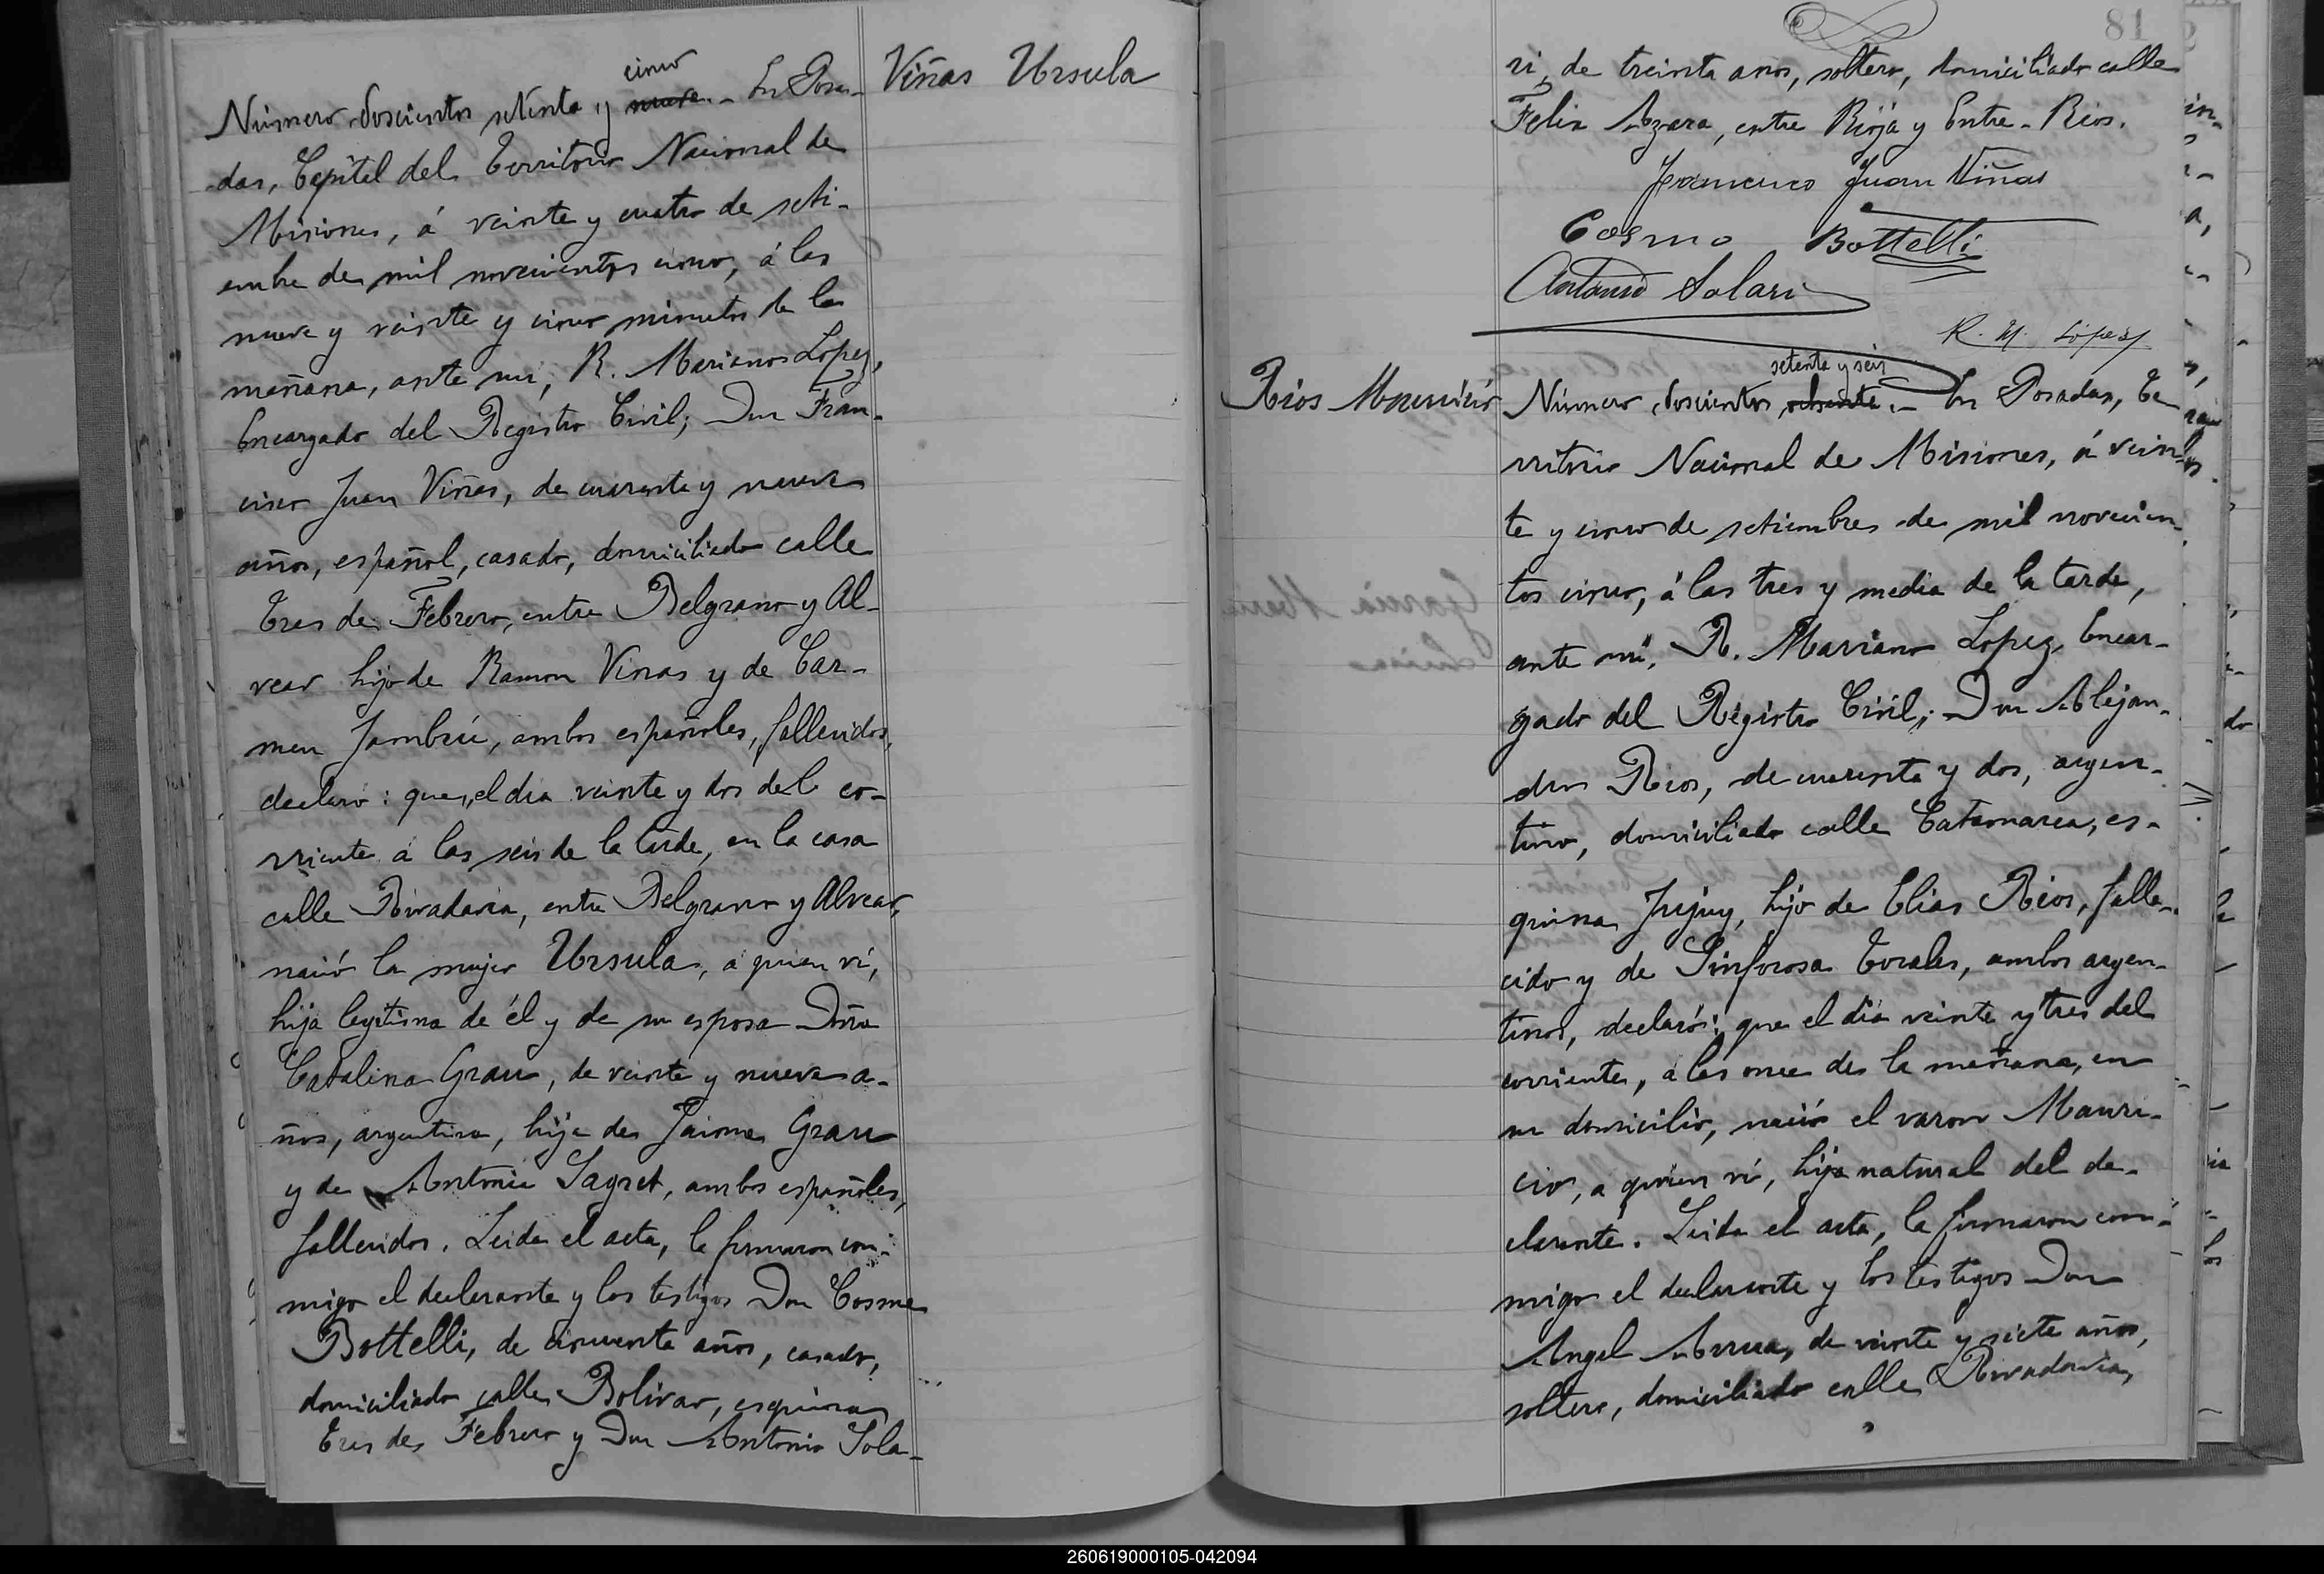 Viñas Ursula
cinco
Número doscientos setenta y nueve.- En Posa-
das, Capital del Territorio Nacional de
Misiones, á veinte y cuatro de seti-
embre de mil novecientos cinco, á las
nueve y veinte y cinco minutos de la
mañana, ante mi, R. Mariano Lopez,
Encargado del Registro Civil; Don Fran-
cisco Juan Viñas, de cuarenta y nueve
años, español, casado, domiciliado calle
Tres de Febrero, entre Belgrano y Al-
vear hijo de Ramon Viñas y de Car-
men Jambrú, ambos españoles, fallecidos,
declaró: que, el dia veinte y dos del co-
rriente á las seis de la tarde, en la casa
calle Rivadavia, entre Belgrano y Alvear,
nació la mujer Ursula, a quien ví,
hija legítima de él y de su esposa Doña
Catalina Grau, de veinte y nueve a-
ños, argentina, hija de Jaime Grau
y de Antonia Sagret, ambos españoles,
fallecidos. Leida el acta, la firmaron con-
migo el declarante y los testigos Don Cosme
Bottelli, de cincuenta años, casado,
domiciliado calle Bolivar, esquina
Tres de Febrero y Don Antonio Sola-
81
ri, de treinta años, soltero, domiciliado calle
Felix Azara, entre Rioja y Entre-Rios.
Francisco Juan Viñas
Cosmo Bottelli
Antonio Solari
R. M. Lópéz
Rios Mauricio
setenta y seis
Número doscientos ochenta.- En Posadas, Te
rritorio Nacional de Misiones, á vein-
te y cinco de setiembre de mil novecien-
tos cinco, á las tres y media de la tarde,
ante mí, R. Mariano Lopez, Encar-
gado del Registro Civil; Don Alejan-
dro Rios, de cuarenta y dos, argen-
tino, domiciliado calle Catamarca, es-
quina Jujuy, hijo de Elias Rios, falle-
cido y de Sinforosa Torales, ambos argen-
tinos, declaró: que el día veinte y tres del
corriente, á las once de la mañana, en
su domicilio, nació el varon Mauri-
cio, a quien ví, hijo natural del de-
clarante. Leida el acta, la firmaron con-
migo el declarante y los testigos Don
Angel Arrua, de veinte y siete años,
soltero, domiciliado calle Rivadavia,
260619000105-042094